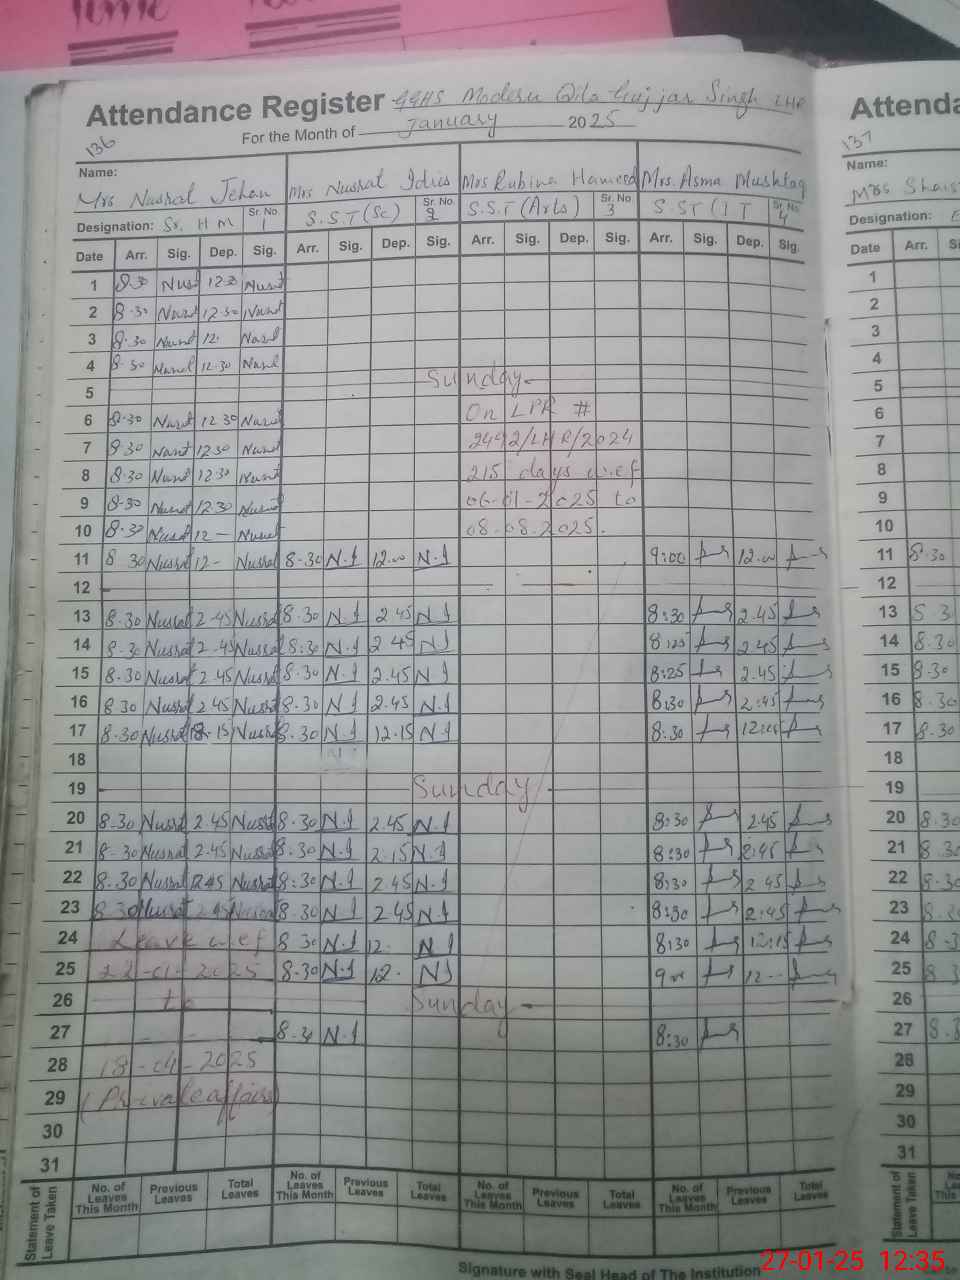 Attendance Register GGHS Modern Qila Gujjar Singh LHR
For the Month of January 2025
136
Name: Mrs Nusrat Jehan Mrs Nusrat Idris Mrs Rubina Hameed Mrs. Asma Mushtaq
Designation: Sr. H M Sr. No. 1 S.S.T (Sc) Sr. No. 2 S.S.T (Arts) Sr. No. 3 S.ST (IT Sr. No. 4
Date Arr. Sig. Dep. Sig. Arr. Sig. Dep. Sig. Arr. Sig. Dep. Sig. Arr. Sig. Dep. Sig.
1 8.30 Nusrat 12.30 Nusrat
2 8.30 Nusrat 12.30 Nusrat
3 8.30 Nusrat 12. Nusrat
4 8.30 Nusrat 12.30 Nusrat
5 Sunday
6 8.30 Nusrat 12.30 Nusrat On LPR #
7 8.30 Nusrat 12.30 Nusrat 2442/LHR/2024
8 8.30 Nusrat 12.30 Nusrat 215 days w.e.f
9 8.30 Nusrat 12.30 Nusrat 06-01-2025 to
10 8.30 Nusrat 12 - Nusrat 08.08.2025.
11 8.30 Nusrat 12 - Nusrat 8.30 N.I 12.00 N.I 9:00 12.00
12
13 8.30 Nusrat 2.45 Nusrat 8.30 N.I 2.45 N.I 8:30 2.45
14 8.30 Nusrat 2.45 Nusrat 8:30 N.I 2 45 N.I 8:25 2.45
15 8.30 Nusrat 2.45 Nusrat 8.30 N.I 2.45 N.I 8:25 2.45
16 8.30 Nusrat 2.45 Nusrat 8.30 N.I 2.45 N.I 8:30 2:45
17 8.30 Nusrat 12.15 Nusrat 8.30 N.I 12.15 N.I 8:30 12:15
18 N.I
19 Sunday
20 8.30 Nusrat 2.45 Nusrat 8.30 N.I 2.45 N.I 8:30 2.45
21 8.30 Nusrat 2.45 Nusrat 8.30 N.I 2.15 N.I 8:30 2:45
22 8.30 Nusrat 2.45 Nusrat 8:30 N.I 2.45 N.I 8:30 2 45
23 8.30 Nusrat 2.45 Nusrat 8.30 N.I 2 45 N.I 8:30 2:45
24 Leave w.e.f 8 30 N.I 12. N.I 8:30 12:15
25 -01-2025 8.30 N.I 12. N.I 12
26 to Sunday
27 8.30 N.I 8:30
28 18-04-2025
29 (Private affairs)
30
31
Statement of Leave Taken
No. of Leaves This Month Previous Leaves Total Leaves No. of Leaves This Month Previous Leaves Total Leaves No. of Leaves This Month Previous Leaves Total Leaves No. of Leaves This Month Previous Leaves Total Leaves
Signature with Seal Head of The Institution
137
Name:
Designation:
Date Arr.
1
2
3
4
5
6
7
8
9
10
11 8.30
12
13
14 8.30
15 8.30
16 8.30
17 8.30
18
19
20 8.30
21 8.30
22 8.30
23
24
25
26
27
28
29
30
31
Statement of Leave Taken
27-01-25 12:35